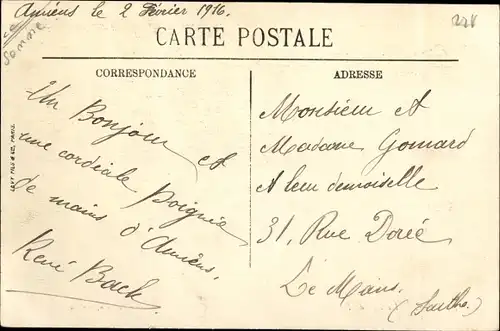 Amiens le 2 Février 1916.
Somme
228
CARTE POSTALE
CORRESPONDANCE
ADRESSE
Un Bonjour et
une cordiale Poignée
de mains d'Amiens.
René Back
Monsieur et
Madame Gomard
et leur demoiselle
31, Rue Dorée
Le Mans.
(Sarthe)
LEVY FILS & Cie, PARIS.